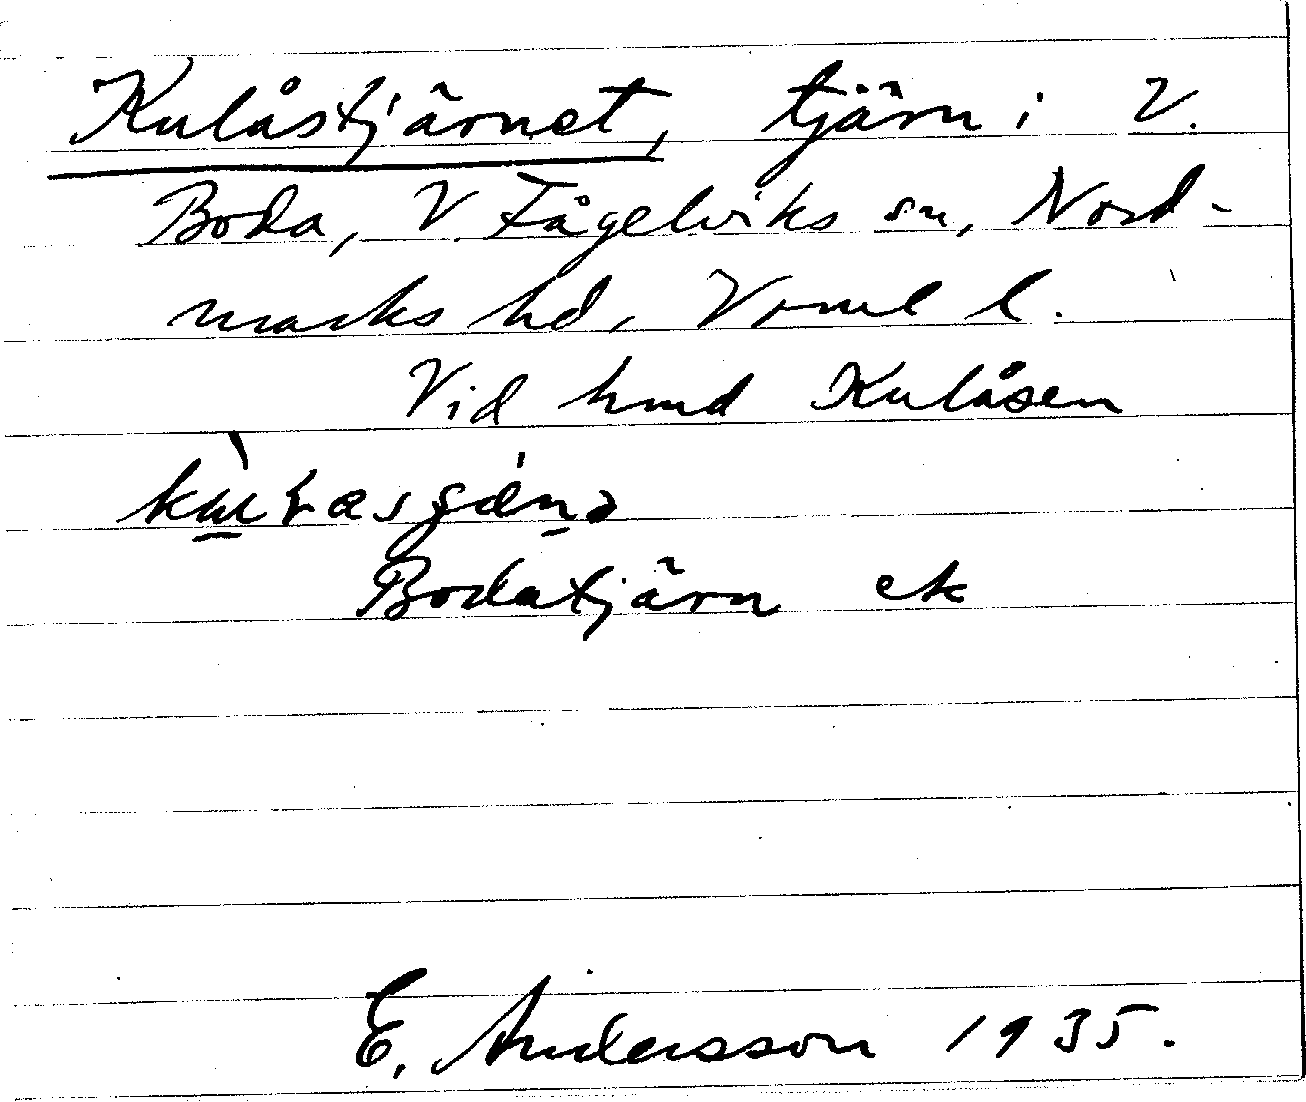 Kulåstjärnet, tjärn i V.
Boda, V. Fågelviks sn, Nord-
marks hd, Vrml l.
Vid hmd Kulåsen
Bodatjärn ek
E. Andersson 1935.